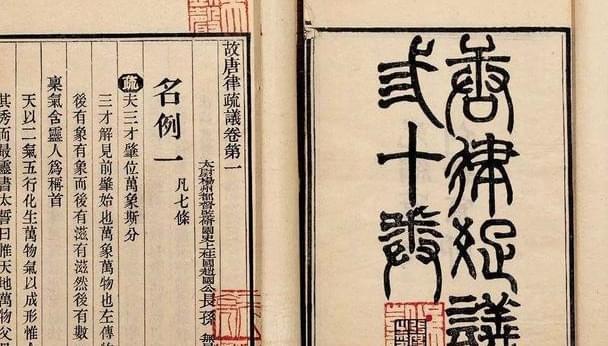 唐律疏議
弎十卷
故唐律疏議卷第一
太尉揚州都督監脩國史上柱國趙國公長孫無
名例一 凡七條
疏 夫三才肇位萬象斯分
三才解見前肇始也萬象萬物也左傳物
後有象有象而後有滋有滋然後有數
稟氣含靈人爲稱首
天以二氣五行化生萬物氣以成形惟人
其秀而最靈書太誓曰惟天地萬物父母